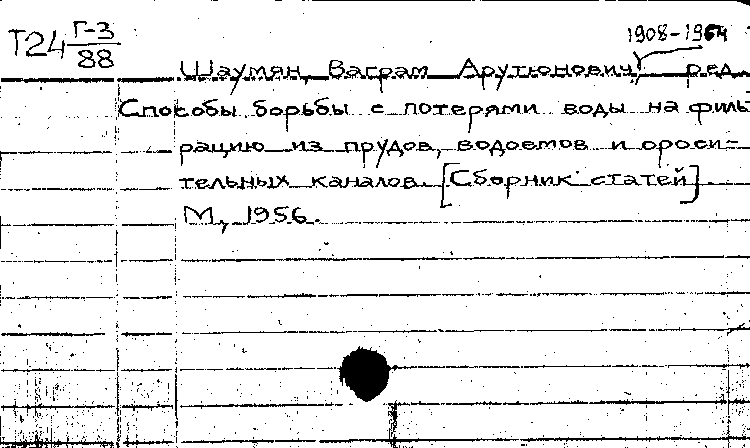 1908-1964
Т24 Г-3/88
Шаумян, Ваграм Арутюнович, ред.
Способы борьбы с потерями воды на филь
рацию из прудов, водоемов и ороси-
тельных каналов. [Сборник статей].
М., 1956.